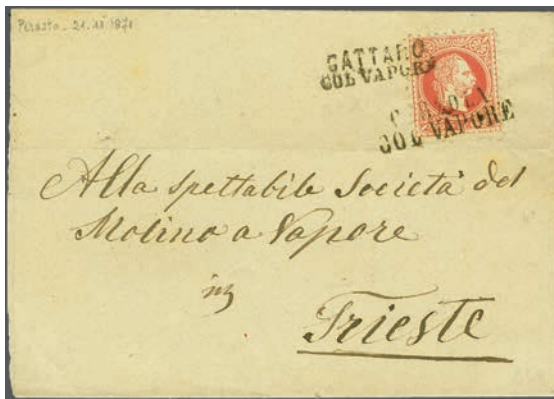 Perasto - 21.11 1871
CATTARO
COL VAPORE
COL VAPORE
Alla spettabile Società del
Molino a Vapore
in
Trieste